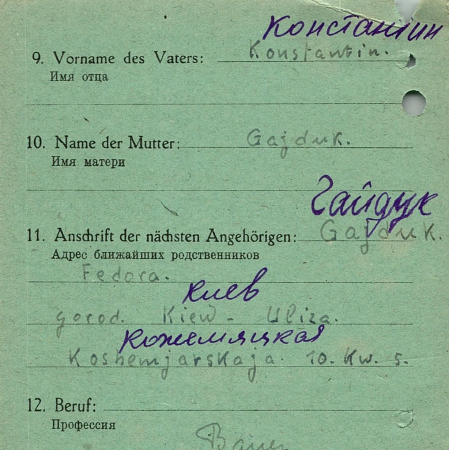 Константин
9. Vorname des Vaters: Konstantin.
Имя отца
10. Name der Mutter: Gajduk.
Имя матери
Гайдук
11. Anschrift der nächsten Angehörigen: Gajduk.
Адрес ближайших родственников
Fedora.
Киев
gorod. Kiew - Uliza.
Кожемяцкая
Koshemjarskaja. 10. Kw. 5.
12. Beruf:
Профессия
Bauer